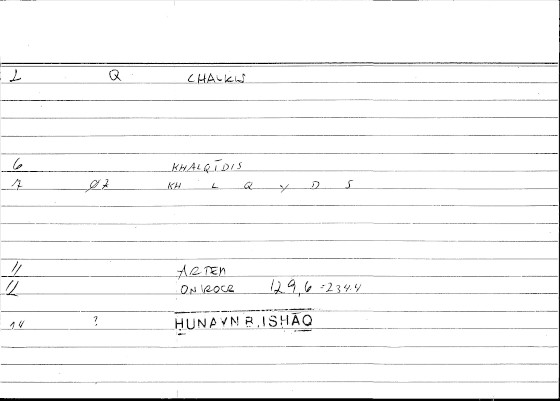 1 Q CHALKIS
6 KHALQĪDIS
7 02 KH L Q Y D S
11 ARTEM
12 ONIROCR 129,6 = 234.4
14 ? HUNAYN B. ISHĀQ